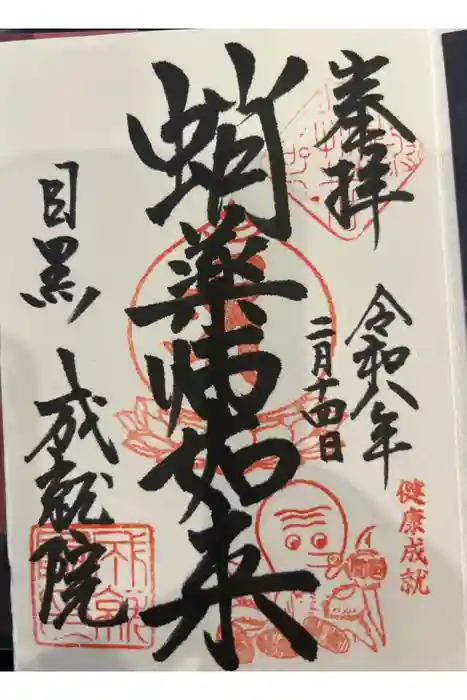 奉拝
令和八年
二月十四日
健康成就
蛸薬师如来
目黒
成就院